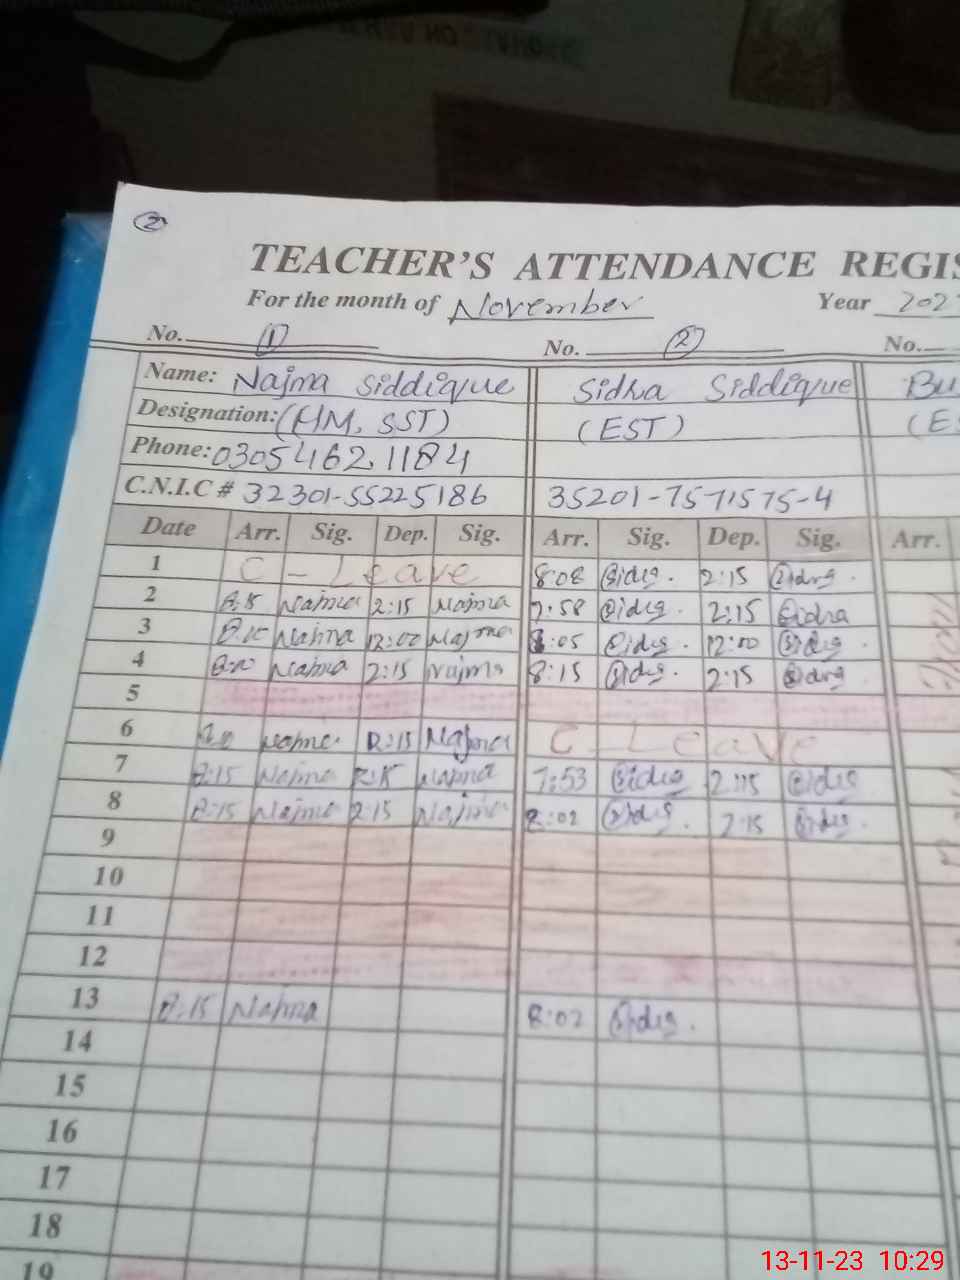 2
TEACHER'S ATTENDANCE REGIS
For the month of November Year 202
No. 1 No. 2 No.
Name: Najma Siddique Sidra Siddique Bu
Designation: (HM, SST) (EST) (ES
Phone: 0305 462 1184
C.N.I.C # 32301-55225186 35201-7571575-4
Date Arr. Sig. Dep. Sig. Arr. Sig. Dep. Sig. Arr.
1 C - Leave 8:08 Sidra. 2:15 Sidra.
2 8:15 Najma 2:15 Najma 7:58 Sidra. 2:15 Sidra
3 Najma 12:00 Najma 8:05 Sidra. 12:00 Sidra.
4 Najma 2:15 Najma 8:15 Sidra. 2:15 Sidra
5
6 Najma 2:15 Najma C - Leave
7 8:15 Najma 2:15 Najma 7:53 Sidra 2:15 Sidra
8 8:15 Najma 2:15 Najma 8:02 Sidra. 2:15 Sidra.
9
10
11
12
13 8:15 Najma 8:02 Sidra.
14
15
16
17
18
19
13-11-23 10:29